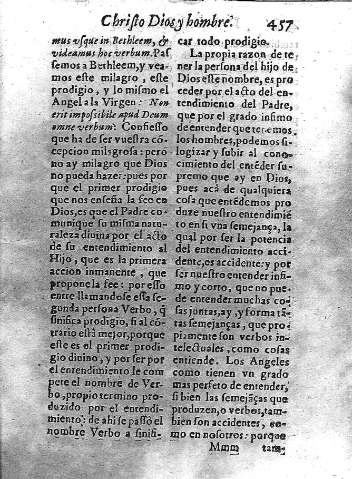 Christo Dios y hombre. 457
mus vsque in Bethleem, &
videamus hoc verbum. Pas
semos a Bethleem, y vea
mos este milagro, este
prodigio, y lo mismo el
Angel a la Virgen: Non
erit impossibile apud Deum
omne verbum: Confiesso
que ha de ser vuestra cõ
cepcion milagrosa: pero
no ay milagro que Dios
no pueda hazer: pues por
que el primer prodigio
que nos enseña la fee en
Dios, es que el Padre co-
munique su misma natu-
raleza diuina por el acto
de su entendimiento al
Hijo, que es la primera
accion inmanente, que
propone la fee: por esso
entre llamandose essa se-
gunda persona Verbo, q̃
sinifica prodigio, si al cõ-
trario està mejor, porque
este es el primer prodi-
gio diuino, y por ser por
el entendimiento le com
pete el nombre de Ver-
bo, propio termino pro-
duzido por el entendi-
miento: de ahi se passò el
nombre Verbo a sinifi-
car todo prodigio.
La propia razon de te-
ner la persona del hijo de
Dios este nombre, es pro
ceder por el acto del en-
tendimiento del Padre,
que por el grado infimo
de entender que tenemos
los hombres, podemos fi-
logizar y subir al cono-
cimiento del entẽder su-
premo que ay en Dios,
pues acà de qualquiera
cosa que entẽdemos pro
duze nuestro entendimiẽ
to en si vna semejança, la
qual por ser la potencia
del entendimiento acci-
dente, es accidente: y por
ser nuestro entender infi-
mo y corto, que no pue-
de entender muchas co-
sas juntas, ay, y forma tã-
tas semejanças, que pro-
piamente son verbos in-
telectuales, como cosas
entiende. Los Angeles
como tienen vn grado
mas perfeto de entender,
si bien las semejãças que
produzen, o verbos, tam-
bien son accidentes, co-
mo en nosotros: porque
Mmm tan-